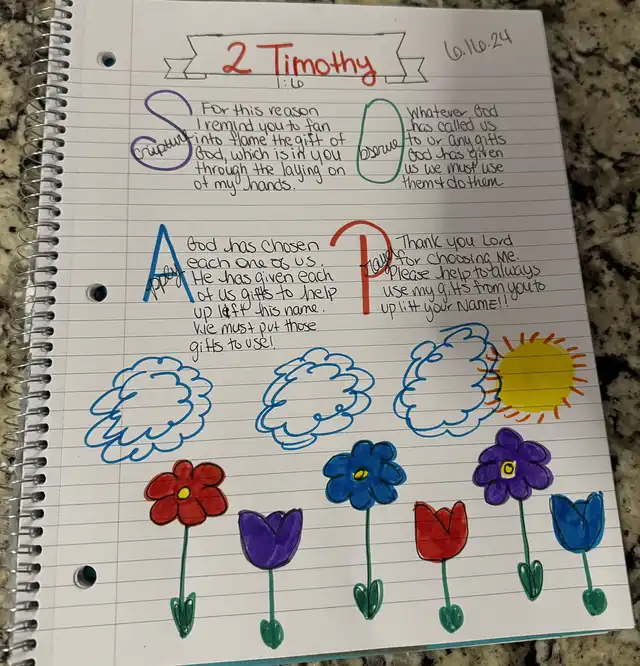 2 Timothy
1:6
6.16.24
Scripture
For this reason
I remind you to fan
into flame the gift of
God, which is in you
through the laying on
of my hands.
Observe
Whatever God
has called us
to or any gifts
God has given
us we must use
them & do them.
Apply
God has chosen
each one of us.
He has given each
of us gifts to help
up lift his name.
We must put those
gifts to use!
Pray
Thank you Lord
for choosing me.
Please help to always
use my gifts from you to
up lift your Name!!